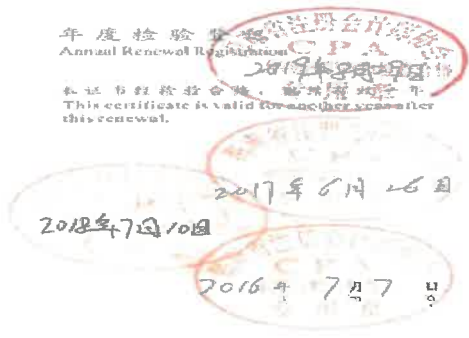 年度检验登记
Annual Renewal Registration
CPA
2019年8月29日
本证书经检验合格，继续有效一年。
This certificate is valid for another year after
this renewal.
2017年6月26日
2018年7月10日
CPA
2016年7月7日